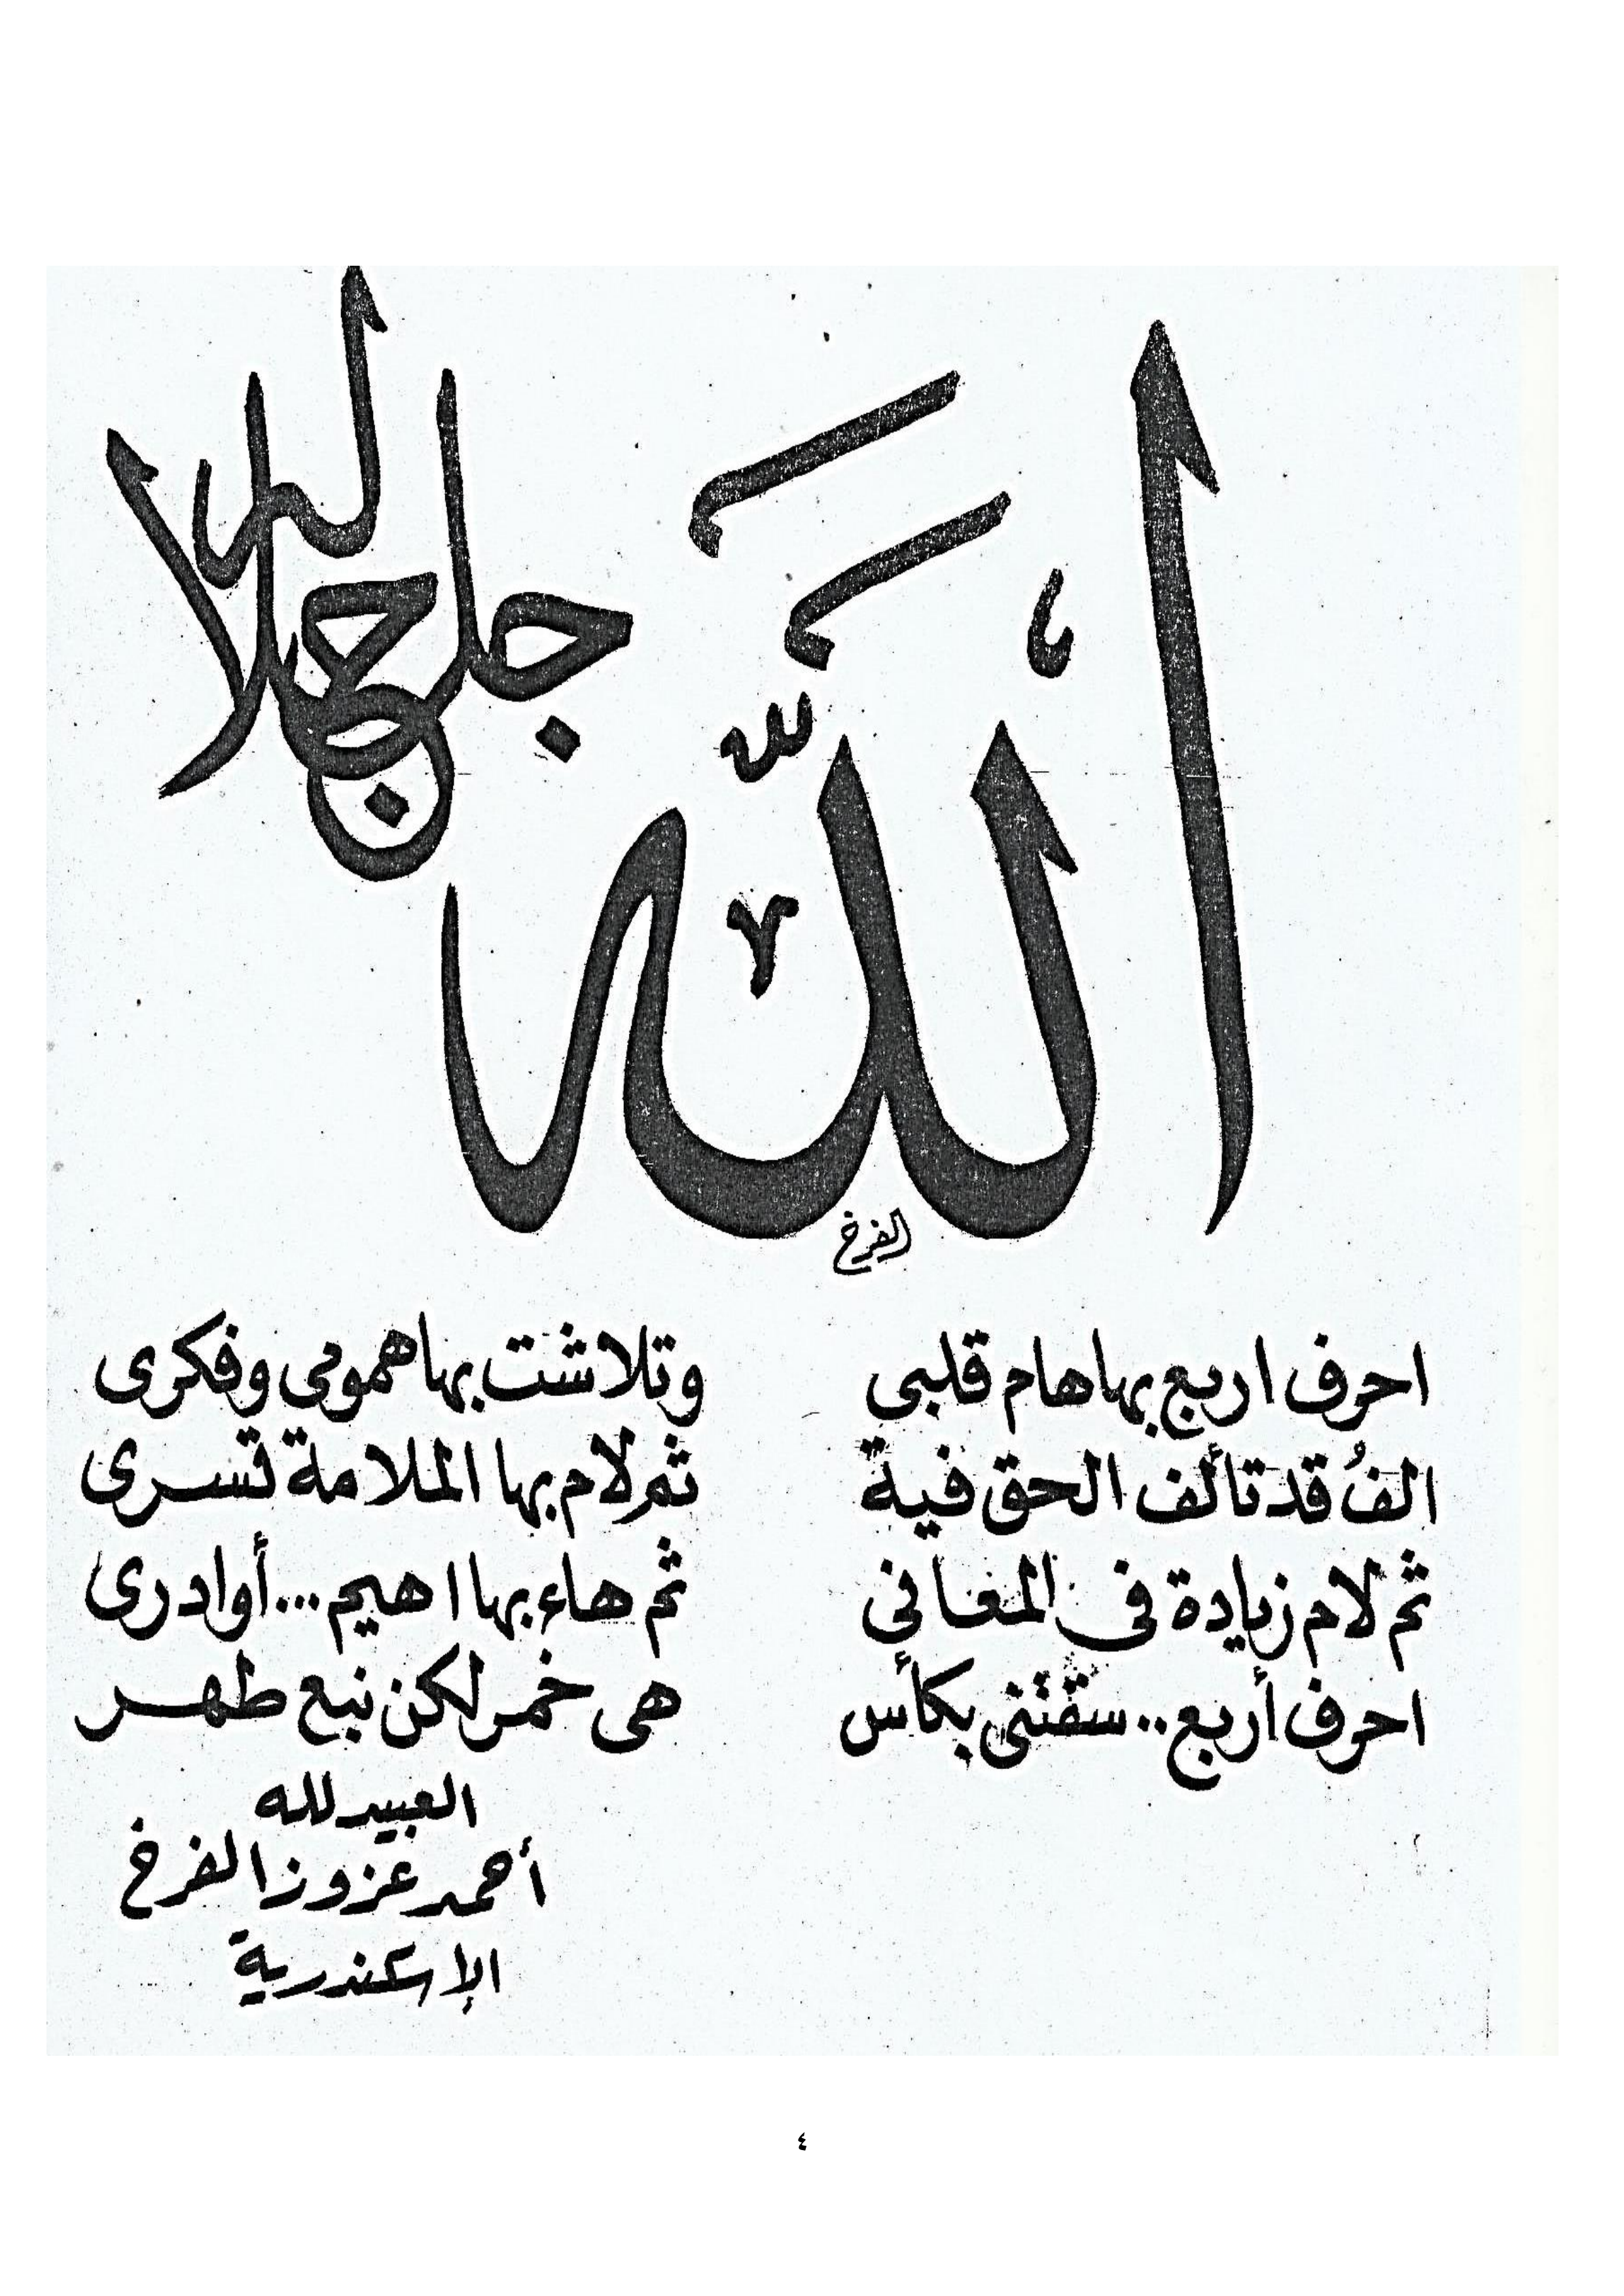 الله
جل جلاله
الفرخ
احرف اربع بها هام قلبى وتلاشت بها همومى وفكرى
الفُ قد تألف الحق فية ثم لام بها الملامة تسرى
ثم لام زيادة في المعاني ثم هاء بها اهيم...أوادرى
احرف أربع..سقتنى بكأس هى خمر لكن نبع طهر
العبيد لله
أحمد عزوز الفرخ
الإسكندرية
٤